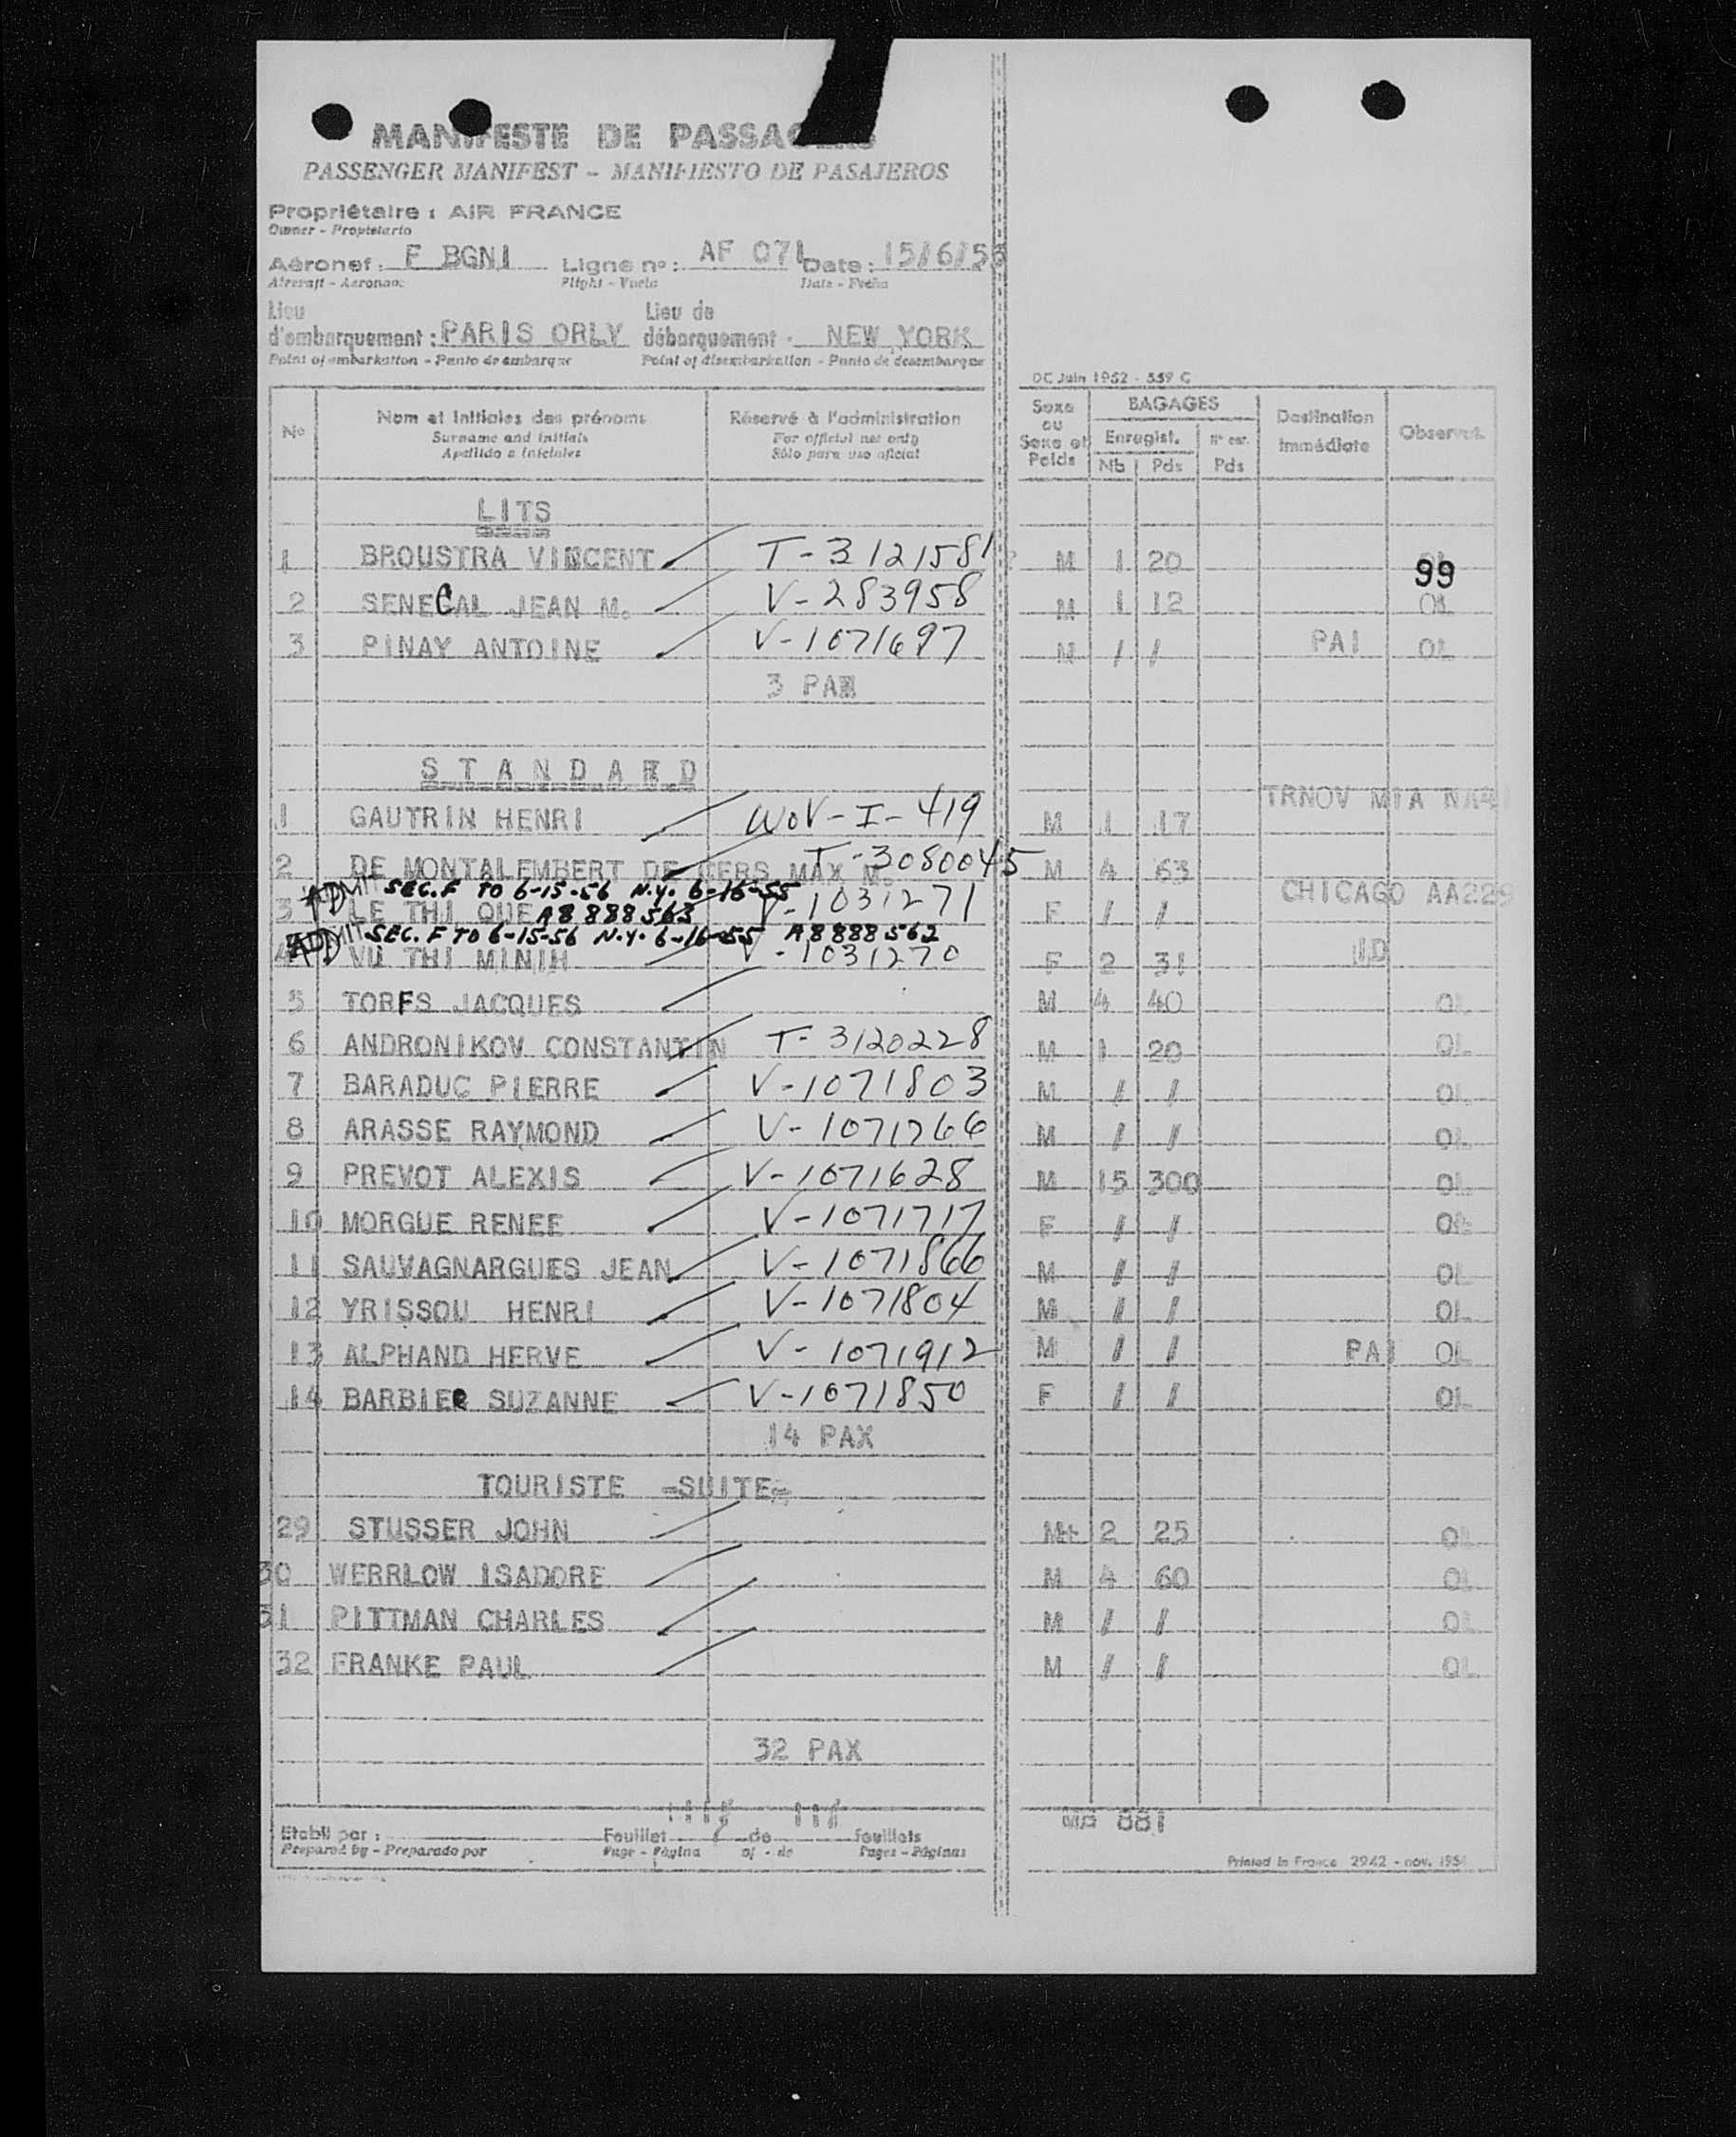 MANIFESTE DE PASSAGERS
PASSENGER MANIFEST - MANIFIESTO DE PASAJEROS
Propriétaire : AIR FRANCE
Owner - Propietario
Aéronef : F BGNI Ligne no : AF 071 Date : 15/6/55
Aircraft - Aeronave Flight - Vuelo Date - Fecha
Lieu d'embarquement : PARIS ORLY Lieu de débarquement : NEW YORK
Point of embarkation - Punto de embarque Point of disembarkation - Punto de desembarque
DC Juin 1952 - 559 C
No Nom et initiales des prénoms Réservé à l'administration Sexe ou Sexe et Poids BAGAGES Destination immédiate Observat.
Surname and initials For official use only Enregist. N° enr.
Apellido e iniciales Sólo para uso oficial Nb Pds Pds
LITS
1 BROUSTRA VINCENT T-3121581 M 1 20 OL
99
2 SENECAL JEAN M. V-283958 M 1 12 OL
3 PINAY ANTOINE V-1071697 M / / PAI OL
3 PAX
STANDARD
1 GAUTRIN HENRI WOV-I-419 M 1 17 TRNOV MIA
2 DE MONTALEMBERT DE CERS MAX M. T-3080045 M 4 63
ADMIT SEC. F TO 6-15-56 N.Y. 6-16-55
3 LE THI QUE A8 888 563 V-1031271 F / / CHICAGO AA229
ADMIT SEC. F TO 6-15-56 N.Y. 6-16-55 A8888562
4 VU THI MINIH V-1031270 F 2 31 ID
5 TORFS JACQUES M 4 40 OL
6 ANDRONIKOV CONSTANTIN T-3120228 M 1 20 OL
7 BARADUC PIERRE V-1071803 M / / OL
8 ARASSE RAYMOND V-1071766 M / / OL
9 PREVOT ALEXIS V-1071628 M 15 300 OL
10 MORGUE RENEE V-1071717 F / / OL
11 SAUVAGNARGUES JEAN V-1071866 M / / OL
12 YRISSOU HENRI V-1071804 M / / OL
13 ALPHAND HERVE V-1071912 M / / PAI OL
14 BARBIER SUZANNE V-1071850 F / / OL
14 PAX
TOURISTE =SUITE=
29 STUSSER JOHN M 2 25 OL
30 WERRLOW ISADORE M 4 60 OL
31 PITTMAN CHARLES M / / OL
32 FRANKE PAUL M / / OL
32 PAX
Etabli par : Feuillet de feuillets 881
Prepared by - Preparado por Page - Página of - de Pages - Páginas
Printed in France 2942 - nov. 195